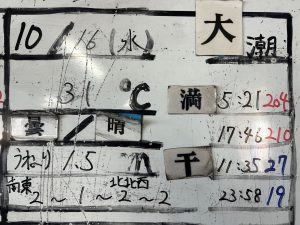 10/16(水) 大潮
31℃ 満 5:21 204
曇/晴 17:46 210
うねり 1.5m 干 11:35 27
南東 2～1～北北西 2～2 23:58 19